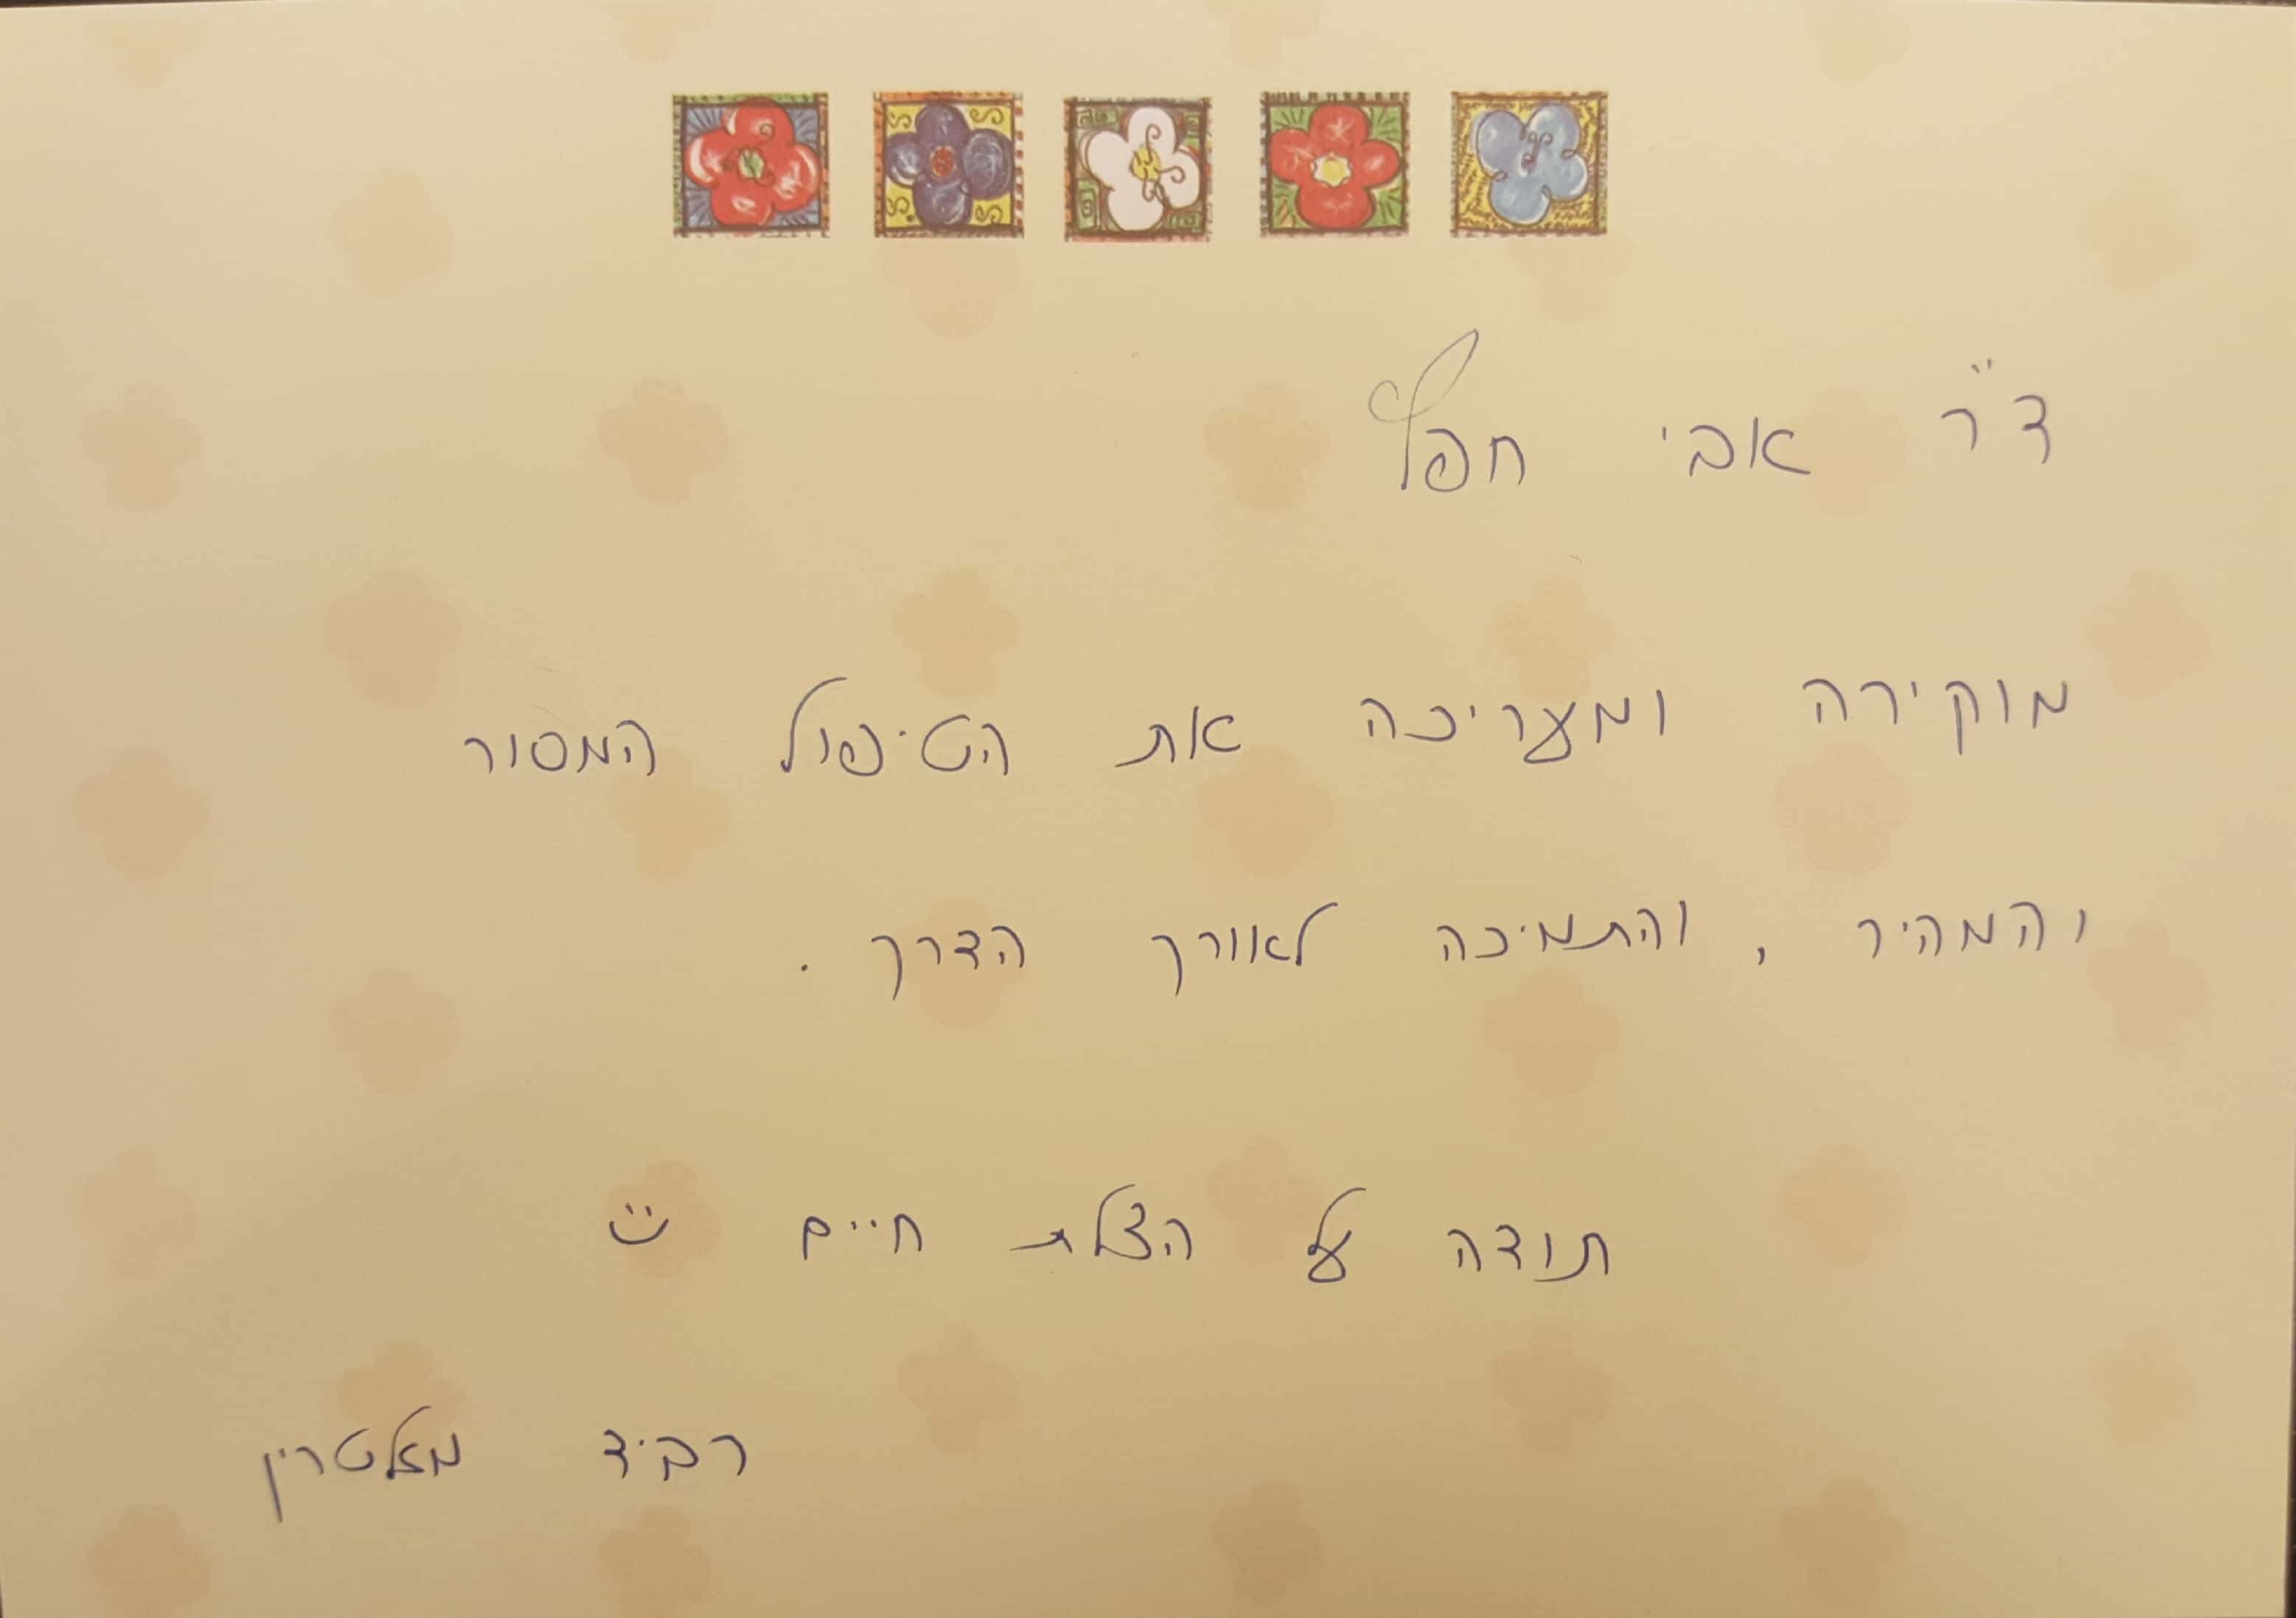 ד"ר אבי חפץ
מוקירה ומעריכה את הטיפול המסור
והמהיר, והתמיכה לאורך הדרך.
תודה על הצלת חיים ☺
רביד מאלטרין